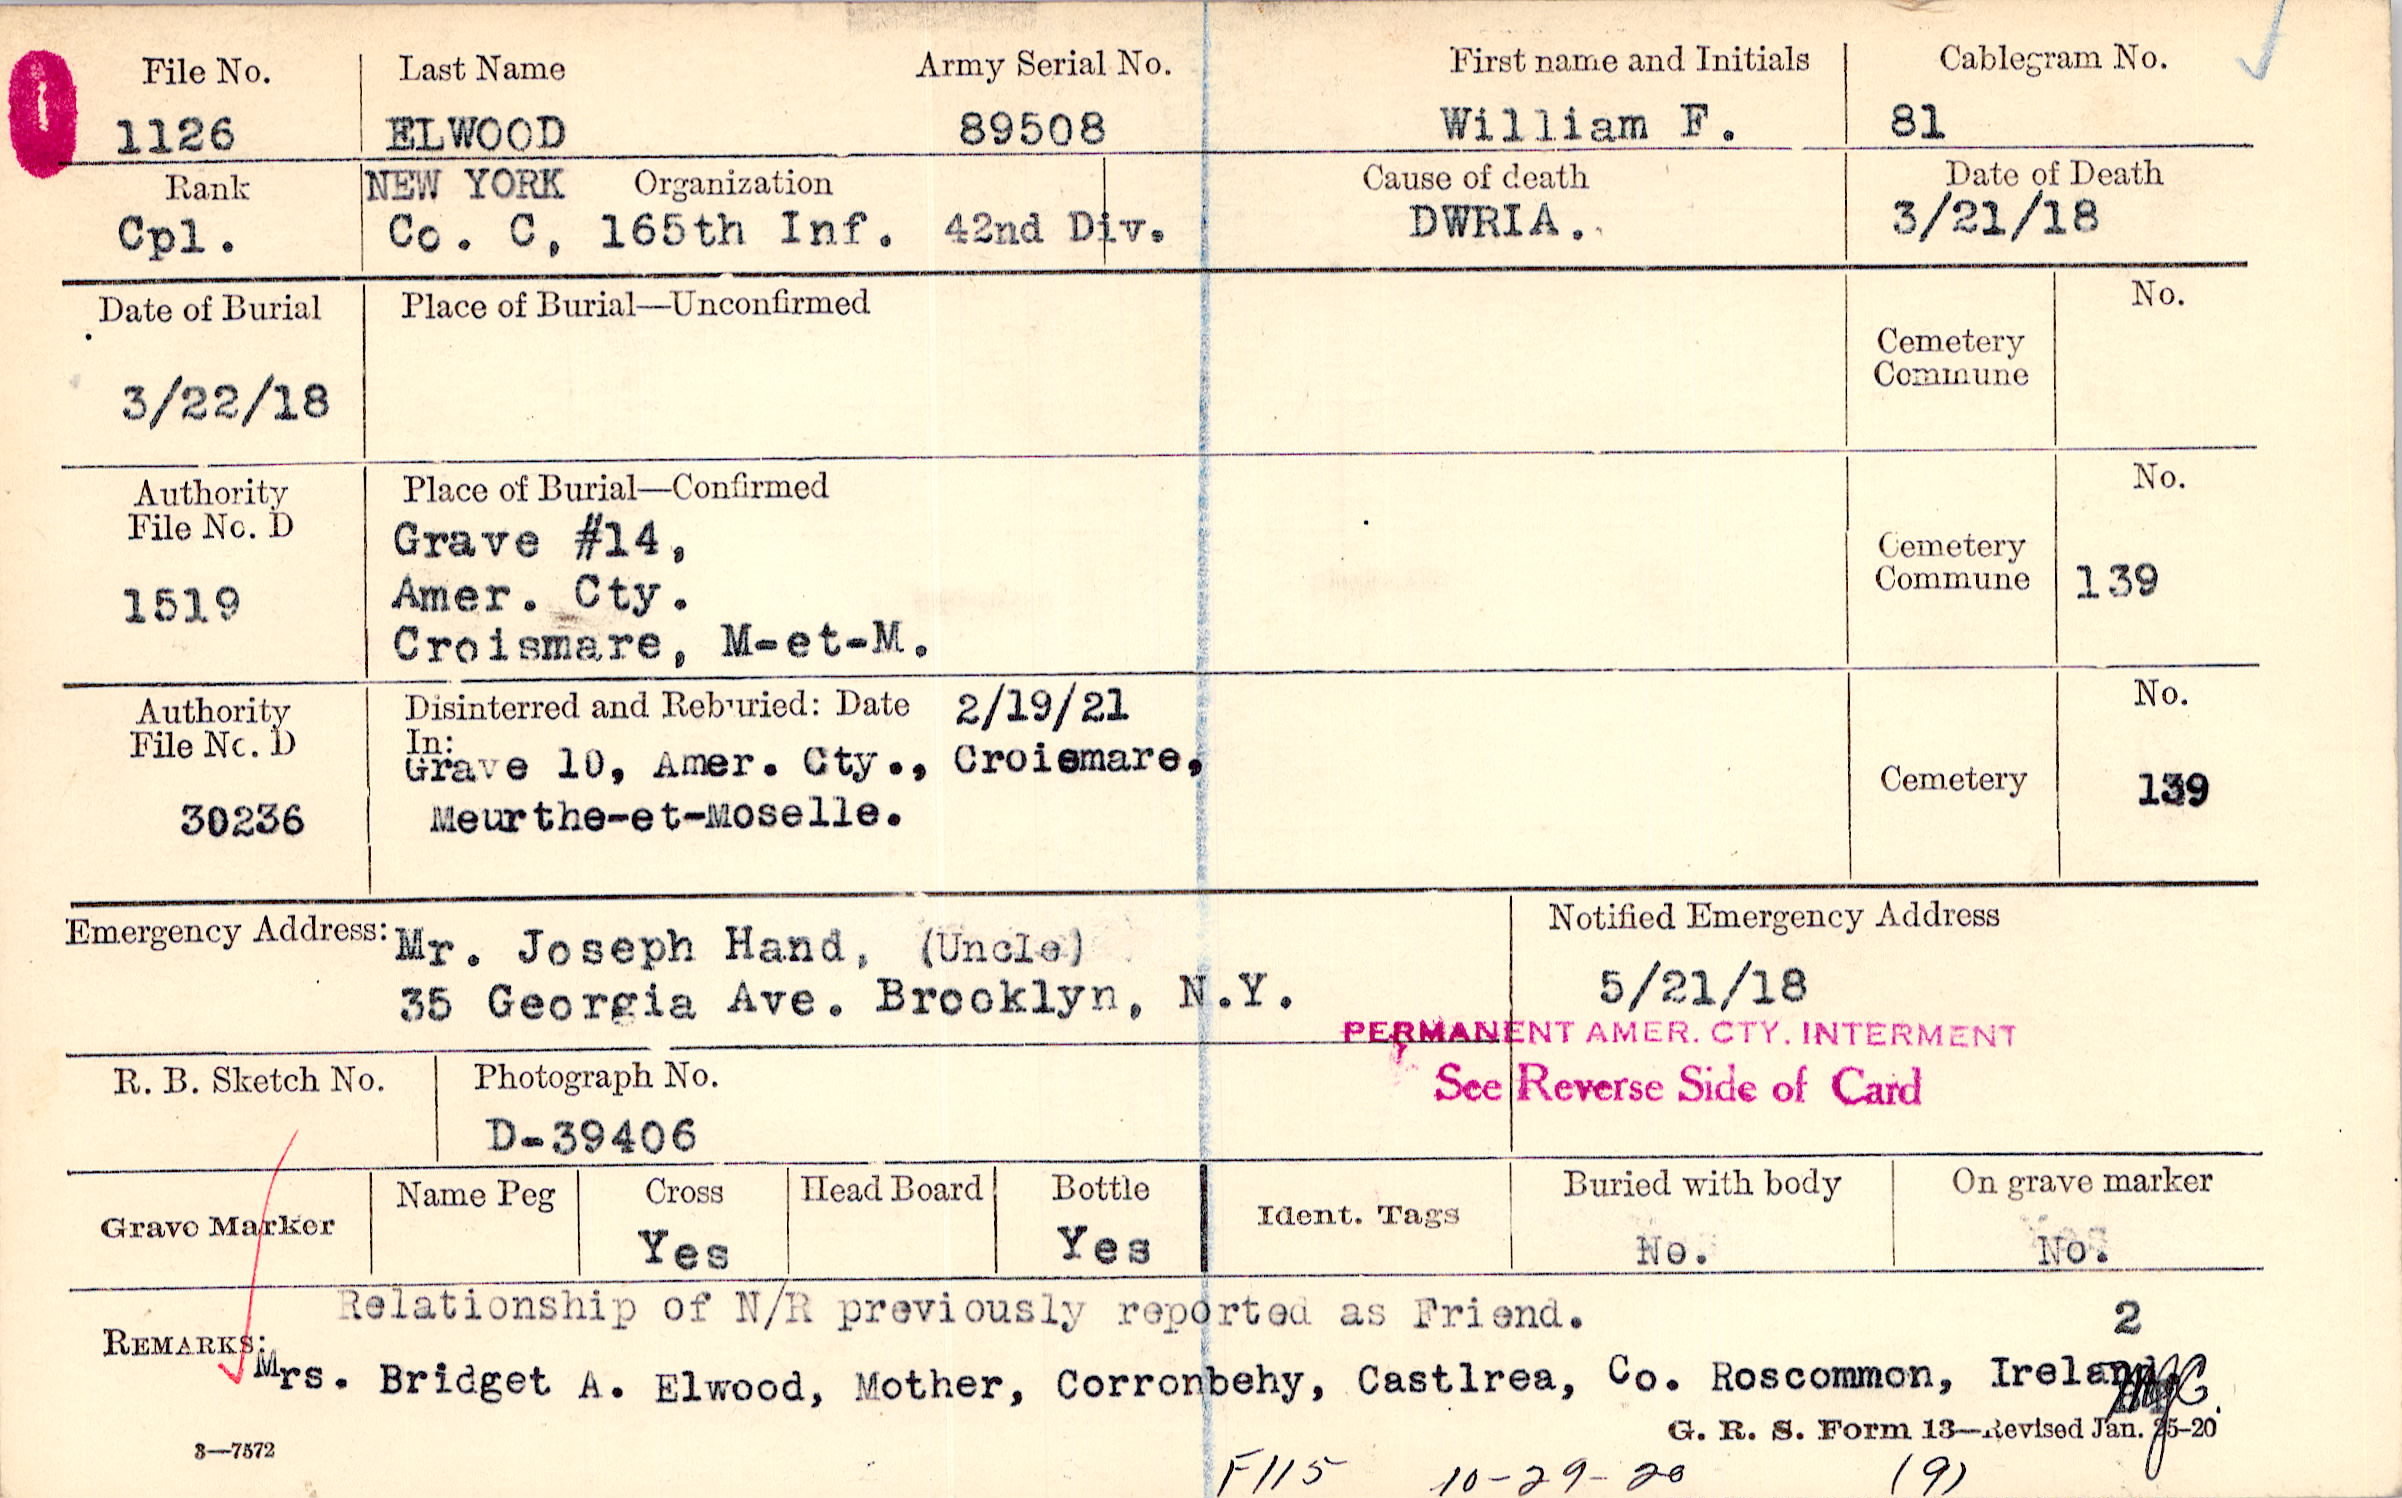 File No. Last Name Army Serial No. First name and Initials Cablegram No.
1126 ELWOOD 89508 William F. 81
Rank NEW YORK Organization Cause of death Date of Death
Cpl. Co. C, 165th Inf. 42nd Div. DWRIA. 3/21/18
Date of Burial Place of Burial—Unconfirmed No.
Cemetery
Commune
3/22/18
Authority Place of Burial—Confirmed No.
File No. D
Grave #14,
Cemetery
Commune 139
1519 Amer. Cty.
Croismare, M-et-M.
Authority Disinterred and Reburied: Date 2/19/21 No.
File No. D In:
Grave 10, Amer. Cty., Croismare, Cemetery 139
30236 Meurthe-et-Moselle.
Emergency Address: Mr. Joseph Hand, (Uncle) Notified Emergency Address
35 Georgia Ave. Brooklyn, N.Y. 5/21/18
PERMANENT AMER. CTY. INTERMENT
See Reverse Side of Card
R. B. Sketch No. Photograph No.
D-39406
Grave Marker Name Peg Cross Head Board Bottle Ident. Tags Buried with body On grave marker
Yes Yes No. No.
Relationship of N/R previously reported as Friend. 2
REMARKS:
Mrs. Bridget A. Elwood, Mother, Corronbehy, Castlrea, Co. Roscommon, Ireland.
G. R. S. Form 13—Revised Jan. 25-20
3—7572
F115 10-29-20 (9)